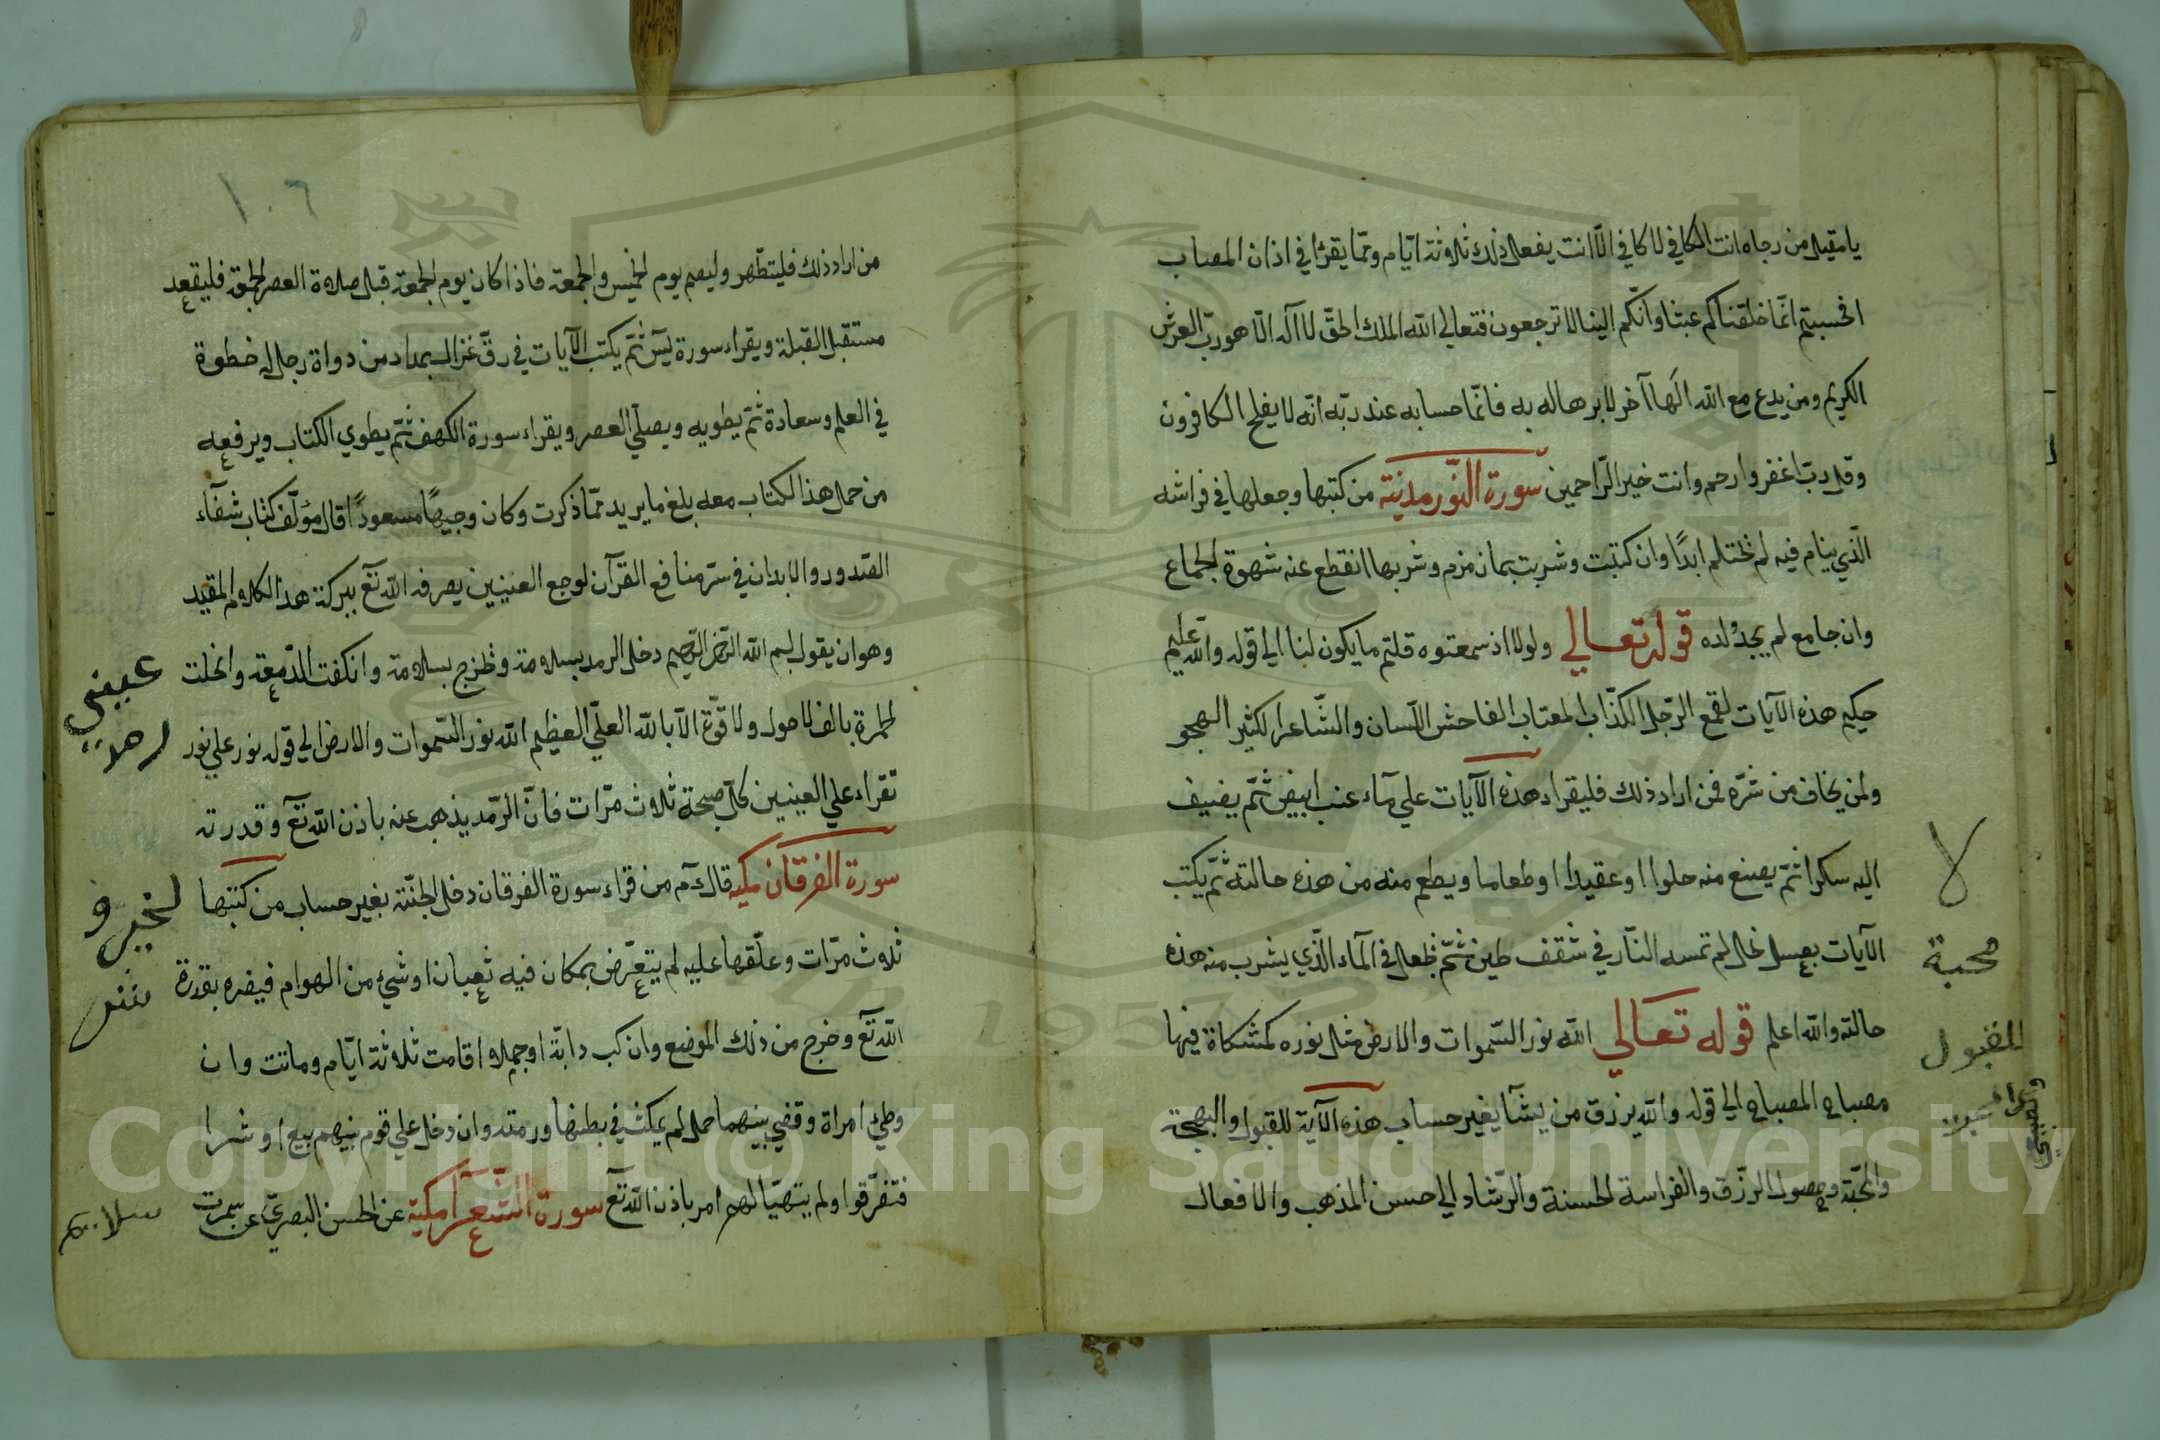 يا مقيل من رجاه انت الكافي لا كافي الّا انت يفعل ذلك ثلاوثة ايّام وممّا يقرا في اذان المصاب
افحسبتم انّما خلقناكم عبثا وانّكم الينا لا ترجعون فتعالي الله الملك الحقّ لا اله الّا هو ربّ العرش
الكريم ومن يدع مع الله الٰها آخر لا برهان له به فانّما حسابه عند ربّه انّه لا يفلح الكافرون
وقل ربّ اغفر وارحم وانت خير الرّاحمين سورة النّور مدنية من كتبها وجعلها في فراشه
الّذي ينام فيه لم يحتلم ابدًا وان كتبت وشربت بماء زمزم وشربها انقطع عنه شهوة الجماع
وان جامع لم يجد ولده قوله تعالي ولولا اذ سمعتموه قلتم ما يكون لنا الي قوله والله عليم
حكيم هذه الآيات لقمع الرّجل الكذّاب المعتاب الفاحش اللّسان والشّاعر الكثير الهجو
ولمن يخاف من شرّه فمن اراد ذلك فليقراء هذه الآيات علي ماء عنب ابيض ثمّ يضيف
اليه سكرا ثمّ يصنع منه حلوا او عقيدا او طعاما ويطعم منه من هذه حالته ثم يكتب
الآيات بعسل نحل لم تمسه النّار في شقف طين ثمّ يجعل في الماء الّذي يشرب منه هذه
حالته والله اعلم قوله تعالي الله نور السّموات والارض مثل نوره كمشكاة فيها
مصباح المصباح الي قوله والله يرزق من يشآ بغير حساب هذه الآية للقبول والبهجة
والمحبّة وحصول الرزّق والفراسة الحسنة والرّشاد الي حسن المذهب والافعال
لا
محبة
للقبول
١٠٦
من اراد ذلك فليتطّهر وليصم يوم الخميس والجمعة فاذا كان يوم الجمعة قبل صلاة العصر الجمعة فليقعد
مستقبل القبلة ويقراء سورة يسٓ ثمّ يكتب الآيات في رقّ غزال بمداد من دواة رجل له خطوة
في العلم وسعادة ثمّ يطويه ويصلّي العصر ويقراء سورة الكهف ثمّ يطوي الكتاب ويرفعه
من حمل هذا الكتاب معه بلغ ما يريد ممّا ذكرت وكان وجيهًا مسعودًا قال مؤلّف كتاب شفآء
الصّدور والابدان في سرّ منافع القرآن لوجع العينين يصرفه الله تع ببركة هذا الكلام المقيد
وهو ان يقول بسم الله الرّحمن الرّحيم دخل الرمد بسلامة وخرج بسلامة وانكفت الدّمعة وانحلت
الحمرة بالف لا حول ولا قوّة الّا بالله العليّ العظيم الله نور السّموات والارض الي قوله نور علي نور
تقراء علي العينين كلّ صبحة ثلاوث مرّات فانّ الرّمد يذهب عنه باذن الله تع وقدرته
سورة الفرقان مكية قال عم من قراء سورة الفرقان دخل الجنّة بغير حساب من كتبها
ثلاوث مرّات وعلّقها عليه لم يتعرّض بمكان فيه ثعبان او شيء من الهوام فيضره بقدرة
الله تع وخرج من ذلك الموضع وان ركب دابّة او جملا اقامت ثلاوثة ايّام وماتت وان
وطئ امراة وقضي بينهما حمل لم يمكث في بطنها ورمته وان دخل علي قوم بينهم بيع او شرا
فتفرّقوا ولم يتهيّا لهم امر باذن الله تع سورة الشّعرآ مكية عن الحسن البصريّ عن سمرت
عيني
Copyright © King Saud University
1957